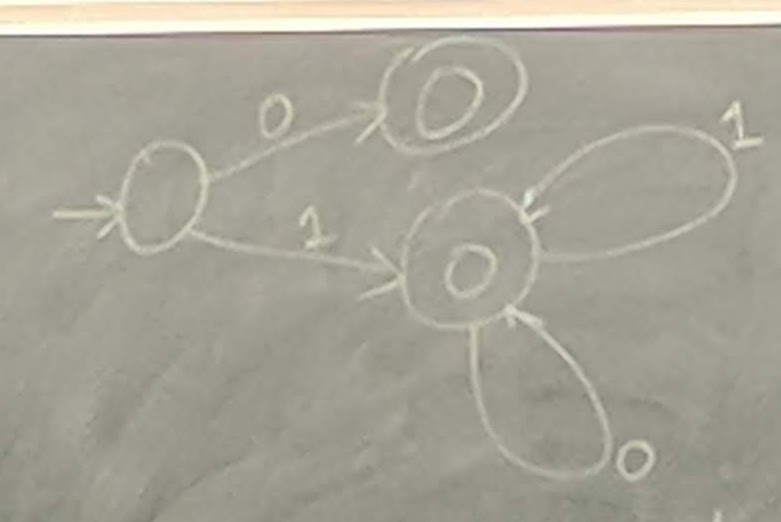 0
1
1
0